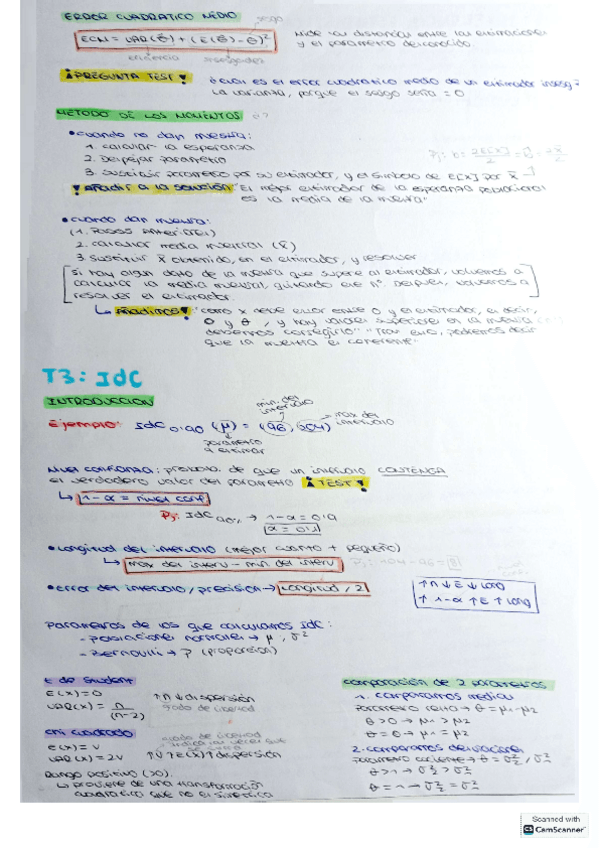 ERROR CUADRATICO MEDIO
sesgo
ECM = VAR(θ̂) + (E(θ̂) - θ)²
eficiencia insesgadez
Mide las distancias entre las estimaciones
y el parametro desconocido
¡PREGUNTA TEST!
¿cual es el error cuadratico medio de un estimador insesg?
La varianza, porque el sesgo seria = 0
METODO DE LOS MOMENTOS
• cuando no dan muestra:
1. calcular la esperanza
2. Despejar parametro
3. Sustituir parametro por su estimador, y el simbolo de E[X] por x̄
¡Añadir a la solución! "El mejor estimador de la esperanza poblacional
es la media de la muestra"
• cuando dan muestra:
(1. Pasos anteriores)
2. calcular media muestral (x̄)
3. sustituir x̄ obtenido, en el estimador, y resolver
[si hay algun dato de la muestra que supere al estimador, volvemos a
calcular la media muestral, quitando ese nº. Despues, volvemos a
resolver el estimador]
↳ Añadimos! "como x debe estar entre 0 y el estimador, es decir,
0 y θ, y hay valores superiores en la muestra
debemos corregirlo" "Tras esto, podremos decir
que la muestra es coherente"
T3: IdC
INTRODUCCION
min. del intervalo
max del intervalo
Ejemplo: IdC 0'90 (μ) = (96, 104)
parametro
a estimar
Nivel confianza: probab. de que un intervalo CONTENGA
el verdadero valor del parametro ¡TEST!
↳ 1-α = nivel conf.
Pj: IdC 90% → 1-α = 0'9
α = 0'1
• Longitud del intervalo (mejor cuanto + pequeño)
↳ max del interv - min. del interv
Pj: 104-96 = 8
• error del intervalo/precision → Longitud / 2
↑n ↓E ↓Long
↑1-α ↑E ↑Long
Parametros de los que calculamos IdC:
- Poblaciones normales → μ, σ²
- Bernoulli → P (proporcion)
t de Student
E(X)=0
VAR(X) = n/(n-2)
↑n ↓dispersión
grado de libertad
chi cuadrado
E(X) = ν
VAR(X) = 2ν
↑ν ↑E(X) ↑dispersión
Rango positivo (>0).
↳ proviene de una transformación
cuadratica que no es simetrica
comparación de 2 parametros
1. comparamos medias
Parametro resta → θ = μ1-μ2
θ>0 → μ1 > μ2
θ=0 → μ1 = μ2
2. comparamos desviaciones
Parametro cociente → θ = σ²₂ / σ²₁
θ>1 → σ²₂ > σ²₁
θ=1 → σ²₂ = σ²₁
Scanned with
CS CamScanner